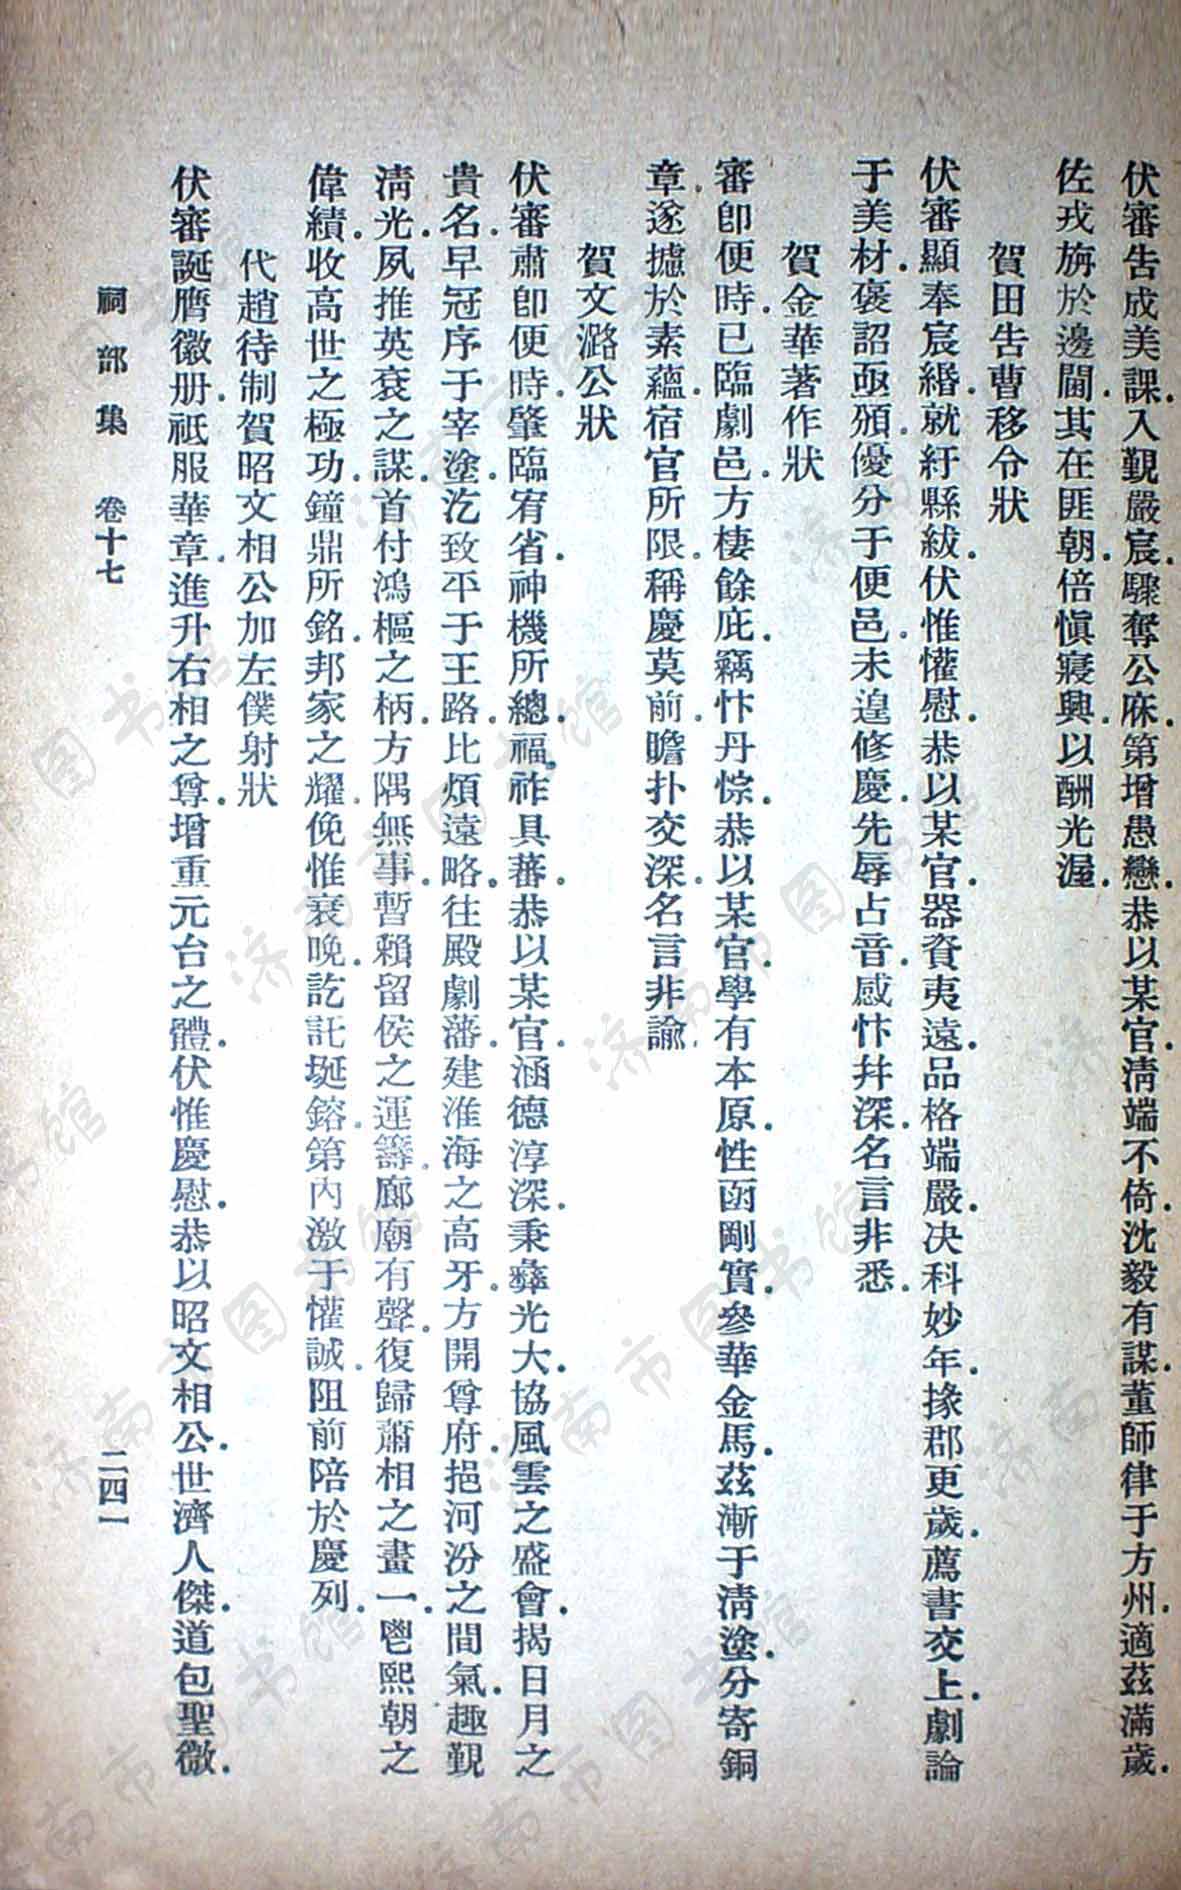 伏審告成美課.入覲嚴宸.驟奪公庥.第增愚戀.恭以某官.淸端不倚.沈毅有謀.董師律于方州.適茲滿歲.
佐戎旃於邊閫.其在匪朝.倍愼寢興.以酬光渥.
賀田告曹移令狀
伏審顯奉宸緡.就紆縣紱.伏惟懽慰.恭以某官.器資夷遠.品格端嚴.决科妙年.掾郡更歲.薦書交上.劇論
于美材.褒詔亟頒.優分于便邑.未遑修慶.先辱占音.感忭幷深.名言非悉.
賀金華著作狀
審卽便時.已臨劇邑.方棲餘庇.竊忭丹悰.恭以某官.學有本原.性函剛實.參華金馬.茲漸于淸塗.分寄銅
章.遂攄於素蘊.宿官所限.稱慶莫前.瞻扑交深.名言非諭.
賀文潞公狀
伏審肅卽便時.肇臨宥省.神機所總.福祚具蕃.恭以某官.涵德淳深.秉彝光大.協風雲之盛會.揭日月之
貴名.早冠序于宰塗.汔致平于王路.比煩遠略.往殿劇藩.建淮海之高牙.方開尊府.挹河汾之間氣.趣覲
淸光.夙推英袞之謀.首付鴻樞之柄.方隅無事.暫賴留侯之運籌.廊廟有聲.復歸蕭相之畫一.鬯熙朝之
偉績.收高世之極功.鐘鼎所銘.邦家之耀.俛惟衰晚.訖託埏鎔.第內激于懽誠.阻前陪於慶列.
代趙待制賀昭文相公加左僕射狀
伏審誕膺徽册.祗服華章.進升右相之尊.增重元台之體.伏惟慶慰.恭以昭文相公.世濟人傑.道包聖微.
祠部集 卷十七 二四一